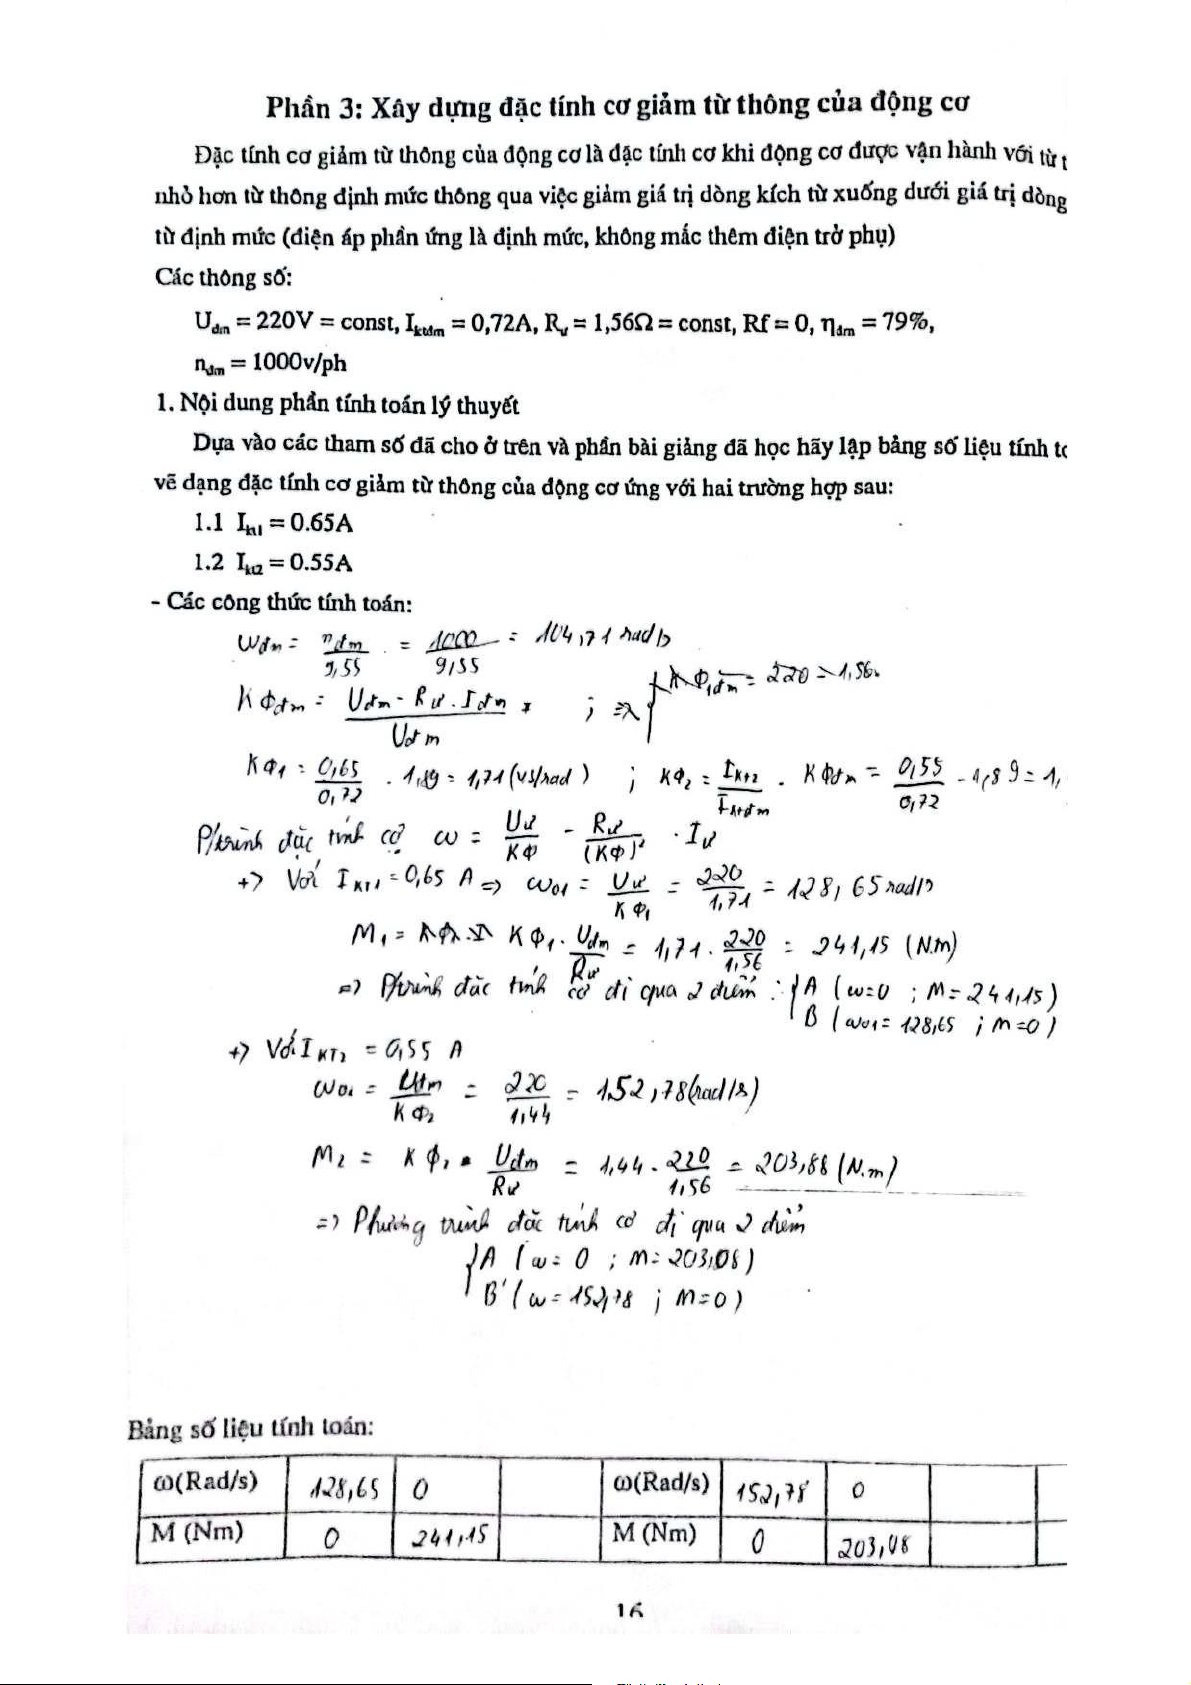 Phần 3: Xây dựng đặc tính cơ giảm từ thông của động cơ
Đặc tính cơ giảm từ thông của động cơ là đặc tính cơ khi động cơ được vận hành với từ t
nhỏ hơn từ thông định mức thông qua việc giảm giá trị dòng kích từ xuống dưới giá trị dòng
từ định mức (điện áp phần ứng là định mức, không mắc thêm điện trở phụ)
Các thông số:
Uđm = 220V = const, Iktđm = 0,72A, Rư = 1,56Ω = const, Rf = 0, ηđm = 79%,
nđm = 1000v/ph
1. Nội dung phần tính toán lý thuyết
Dựa vào các tham số đã cho ở trên và phần bài giảng đã học hãy lập bảng số liệu tính to
vẽ dạng đặc tính cơ giảm từ thông của động cơ ứng với hai trường hợp sau:
1.1 Ikt1 = 0.65A
1.2 Ikt2 = 0.55A
- Các công thức tính toán:
ωđm = nđm / 9,55 = 1000 / 9,55 = 104,71 rad/s
KΦđm = (Uđm - Rư . Iđm) / Uđm ; =>
KΦ1 = 0,65 / 0,72 . 1,89 = 1,71 (Vs/rad) ; KΦ2 = Ikt2 / Iktđm . KΦđm = 0,55 / 0,72 - 1,89 = 1,
P/trình đặc tính cơ ω = Uư / KΦ - Rư / (KΦ)² . Iư
+> Với IKT1 = 0,65 A => ω01 = Uư / KΦ1 = 220 / 1,71 = 128,65 rad/s
M1 = KΦ1 . Uđm / Rư = 1,71 . 220 / 1,56 = 241,15 (N.m)
=> P/trình đặc tính cơ đi qua 2 điểm : { A (ω=0 ; M=241,15)
B (ω01= 128,65 ; M=0)
+> Với IKT2 = 0,55 A
ω01 = Uđm / KΦ2 = 220 / 1,44 = 152,78 (rad/s)
M2 = KΦ2 . Uđm / Rư = 1,44 . 220 / 1,56 = 203,88 (N.m)
=> Phương trình đặc tính cơ đi qua 2 điểm
{ A (ω= 0 ; M= 203,08)
B' (ω= 152,78 ; M=0)
Bảng số liệu tính toán:
ω(Rad/s) 128,65 0 ω(Rad/s) 152,78 0
M (Nm) 0 241,15 M (Nm) 0 203,08
16